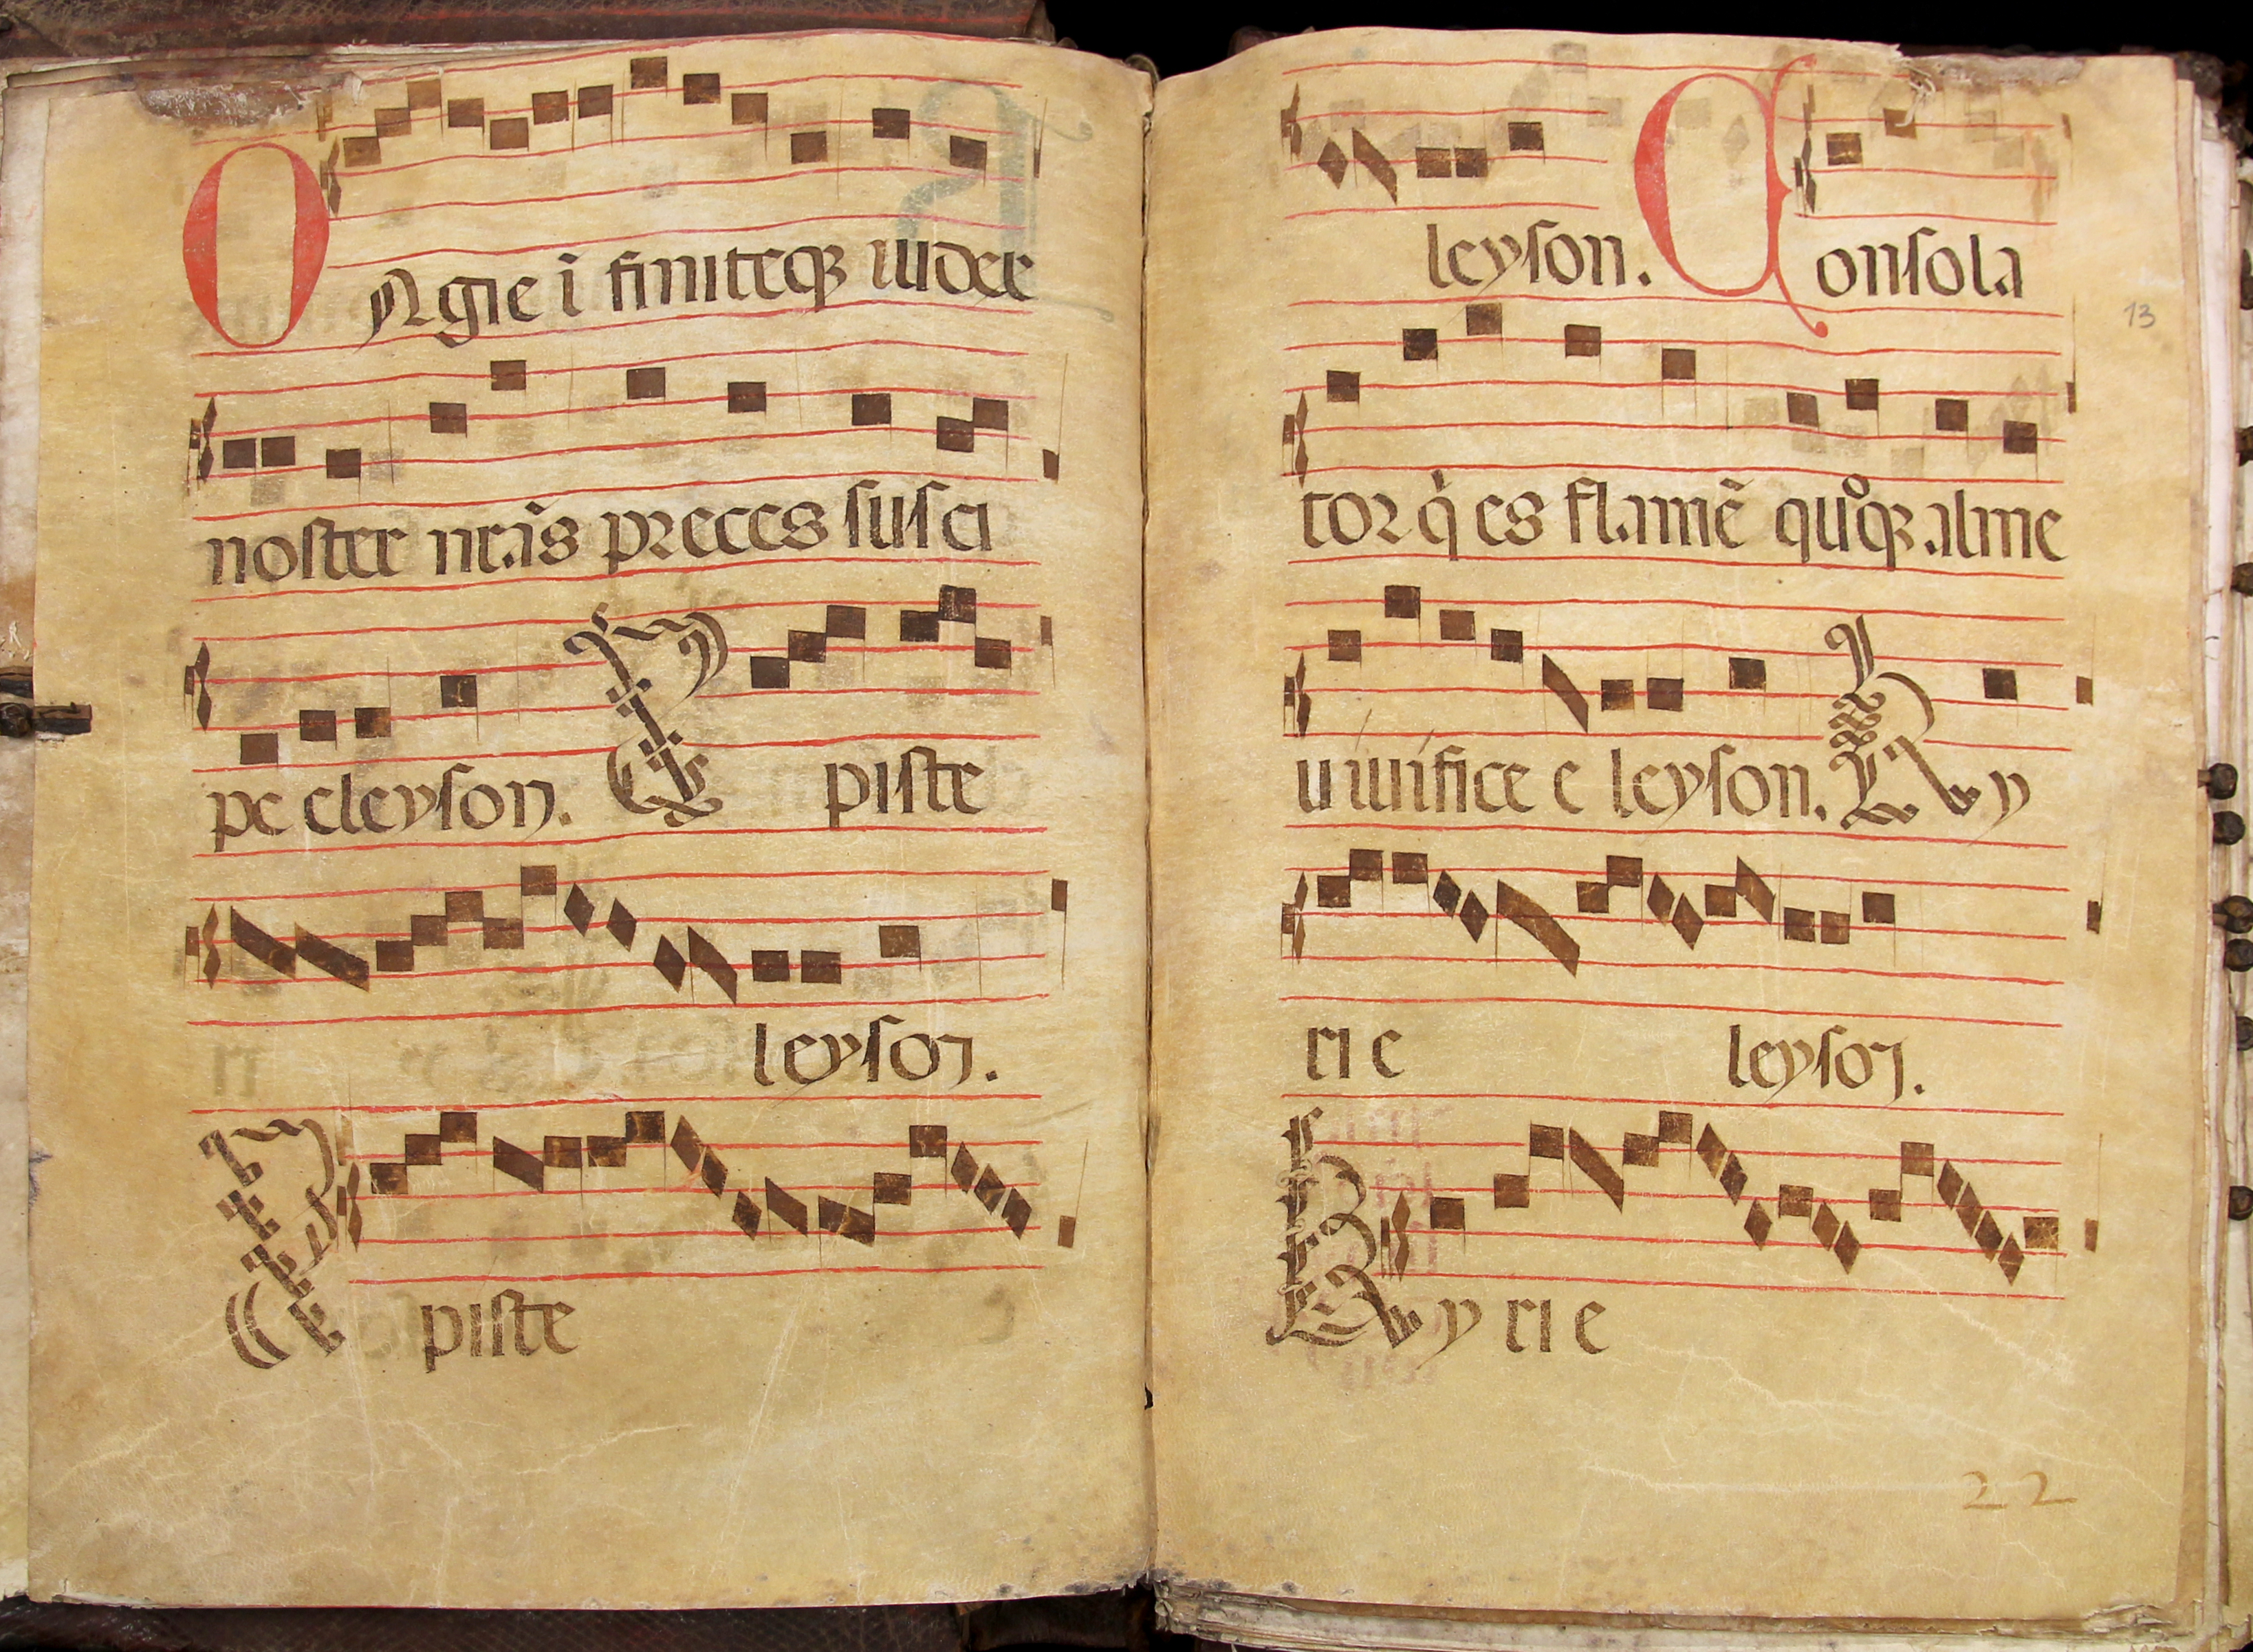 O Agie ī finiteqꝫ iudex
noster nrās preces susci
pe eleyson. Xpiste
leyson.
Xpiste
leyson. Consola
13
tor q̇ es flamē quoqꝫ alme
uiuifice e leyson. Ky
rie leyson.
Ky rie
22